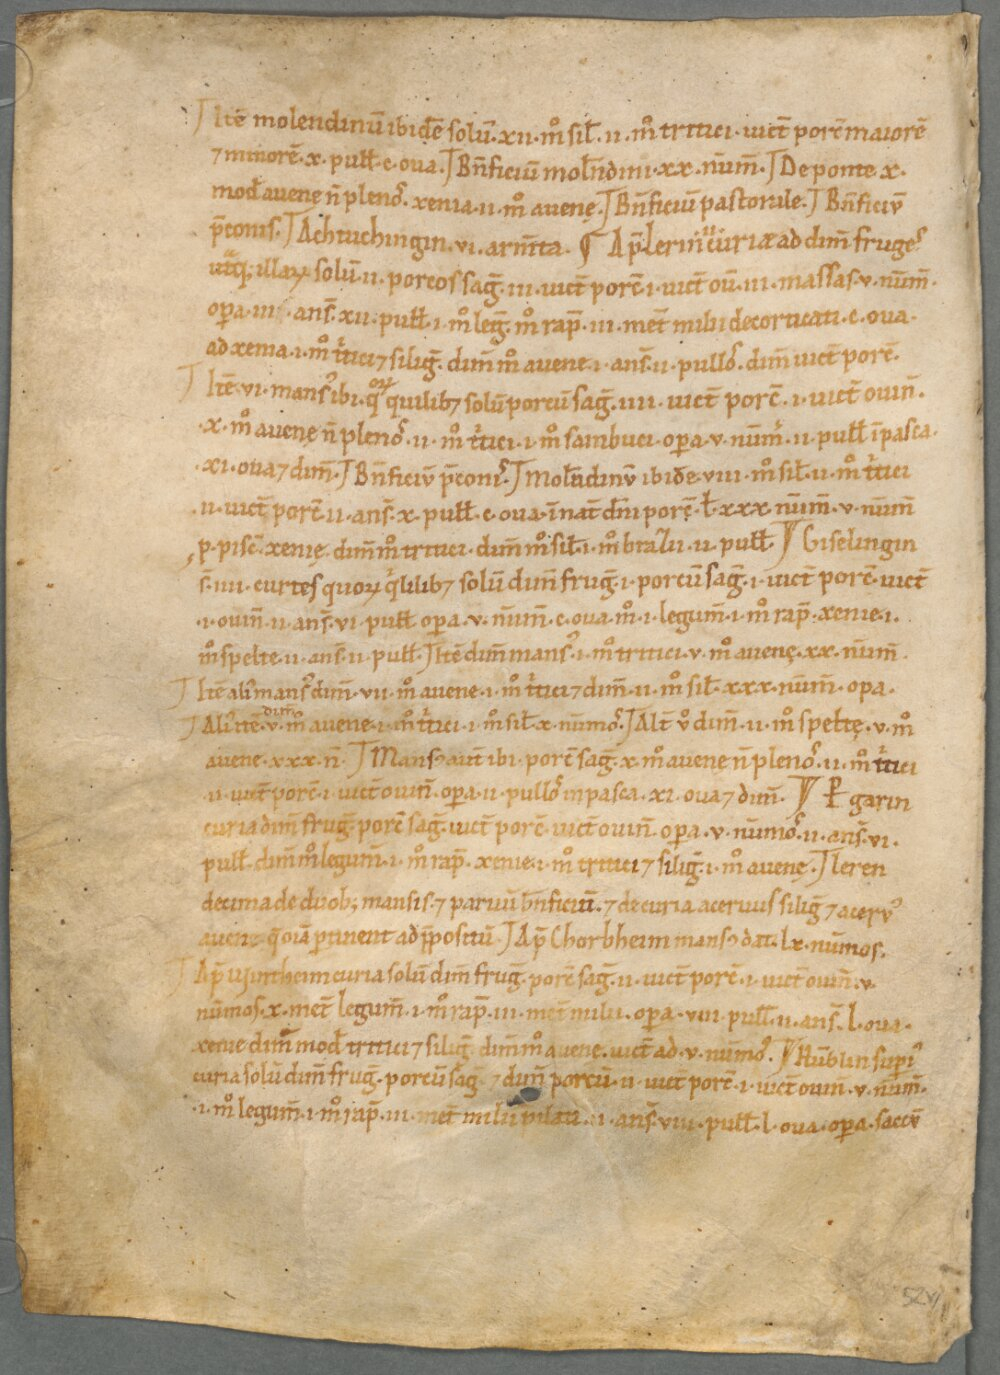 Itē molendinū ibidē solū·xii·m̊ sil̄·ii·m̊ tritici·vict̄ porc̄ maiorē
⁊ minorē·x·pull̄·c·ova·Bn̄ficiū mol̄ndini·xx·nūm̄·De ponte·x·
mod̄ avenę n̄ plenoꝰ·xenia·ii·m̊ avenę·Bn̄ficiū pastorale·Bn̄ficiū
p̄conis·Achtuchingin·vi·arm̄ta·¶ Ap̄ Lerin curiæ ad dim̄ frugeꝰ
solū·ii·porcos saḡ·iii·vict̄ porc̄·i·vict̄ oū·iii·massas·v·nūm̄·
oꝑa·iii·ans̄·xii·pull̄·i·m̊ leḡ·m̊ rap̄·iii·met̄ milii decorticati·c·ova·
ad xenia·i·m̊ tͥtici ⁊ siliḡ·dim̄ m̊ avene·i·ans̄·ii·pulloꝰ·dim̄ vict̄ porc̄·
Itē·vi·mansꝰ ibi·qͦꝝ quilibꝫ solū porcū saḡ·iiii·vict̄ porc̄·i·vict̄ ovin̄·
·x·m̊ avenę n̄ plenoꝰ·ii·m̊ tͥtici·i·m̊ sambuci·oꝑa·v·nūm̄·ii·pull̄ ī pasca·
·xi·ova ⁊ dim̄·Bn̄ficiū p̄coniꝰ·Mol̄ndinū ibidē·viii·m̊ sil̄·ii·m̊ tͥtici
ii·vict̄ porc̄·ii·ans̄·x·pull̄·c·ova·ī nat̄ dn̄i porc̄·l̄·xxx·nūm̄·v·nūm̄
ꝓ pisc̄·xenię·dim̄ m̊ tritici·dim̄ m̊ sil̄·i·m̊ brazii·ii·pull̄·¶ Giselingin
s̄·iiii·curtes quoꝝ qͥlilibꝫ solū dim̄ fruḡ·i·porcū saḡ·i·vict̄ porc̄·vict̄
·i·ovin̄·ii·ans̄·vi·pull̄ oꝑa·v·nūm̄·c·ova·m̊·i·legum̄·i·m̊ rap̄·xenie·i·
m̊ spelte·ii·ans̄·ii·pull̄·Itē dim̄ mansꝰ·i·m̊ tritici·v·m̊ avenę·xx·nūm̄·
Itē aliꝰ mansꝰ dim̄·vii·m̊ avene·i·m̊ tͥtici ⁊ dim̄·ii·m̊ sil̄·xxx·nūm̄·opa·
Aliꝰ itē·dim̄·v·m̊ avene·i·m̊ tͥtici·i·m̊ sil̄·x·nūmoꝰ·Alt̄ v̊ dim̄·ii·m̊ speltę·v·m̊
avene·xxx·n̄·Mansꝰ aut̄ ibi·porc̄ saḡ·x·m̊ avenę n̄ plenoꝰ·ii·m̊ tͥtici
·ii·vict̄ porc̄·i·vict̄ ovin̄·oꝑa·ii·pulloꝰ in pasca·xi·ova ⁊ dim̄·¶ garin
curia dim̄ fruḡ·porc̄ saḡ·vict̄ porc̄·vict̄ ovin̄·oꝑa·v·nūmoꝰ·ii·ans̄·vi·
pull̄·dim̄ m̊ legum̄·i·m̊ rap̄·xenie·i·m̊ tritici ⁊ siliḡ·i·m̊ avenę·leren
decima de duobꝫ mansis·⁊ parvū bn̄ficiū·⁊ de curia acervus siliḡ ⁊ acervꝰ
avenę q̄ oīa ꝑtinent ad p̄positū·Ap̄ Chorbheim mansꝰ dat·lx·nūmos·
Ap̄ Wintheim curia solū dim̄ fruḡ·porc̄ saḡ·ii·vict̄ porc̄·i·vict̄ ovin̄·v·
nūmos·x·met̄ legum̄·i·m̊ rap̄·iii·met̄ milii·oꝑa·viii·pull̄·ii·ans̄·l·ova·
xenie dim̄ mod̄ tritici ⁊ siliḡ·dim̄ m̊ avene·vict̄ ad·v·nūmoꝰ·¶ Hūblin supiꝰ
curia solū dim̄ fruḡ·porcū saḡ·⁊ dim̄ porcū·ii·vict̄ porc̄·i·vict̄ ovin̄·v·nūm̄·
·i·m̊ legum̄·i·m̊ rap̄·iii·met̄ milii pilati·ii·ans̄·viii·pull̄·l·ova·oꝑa·saccū